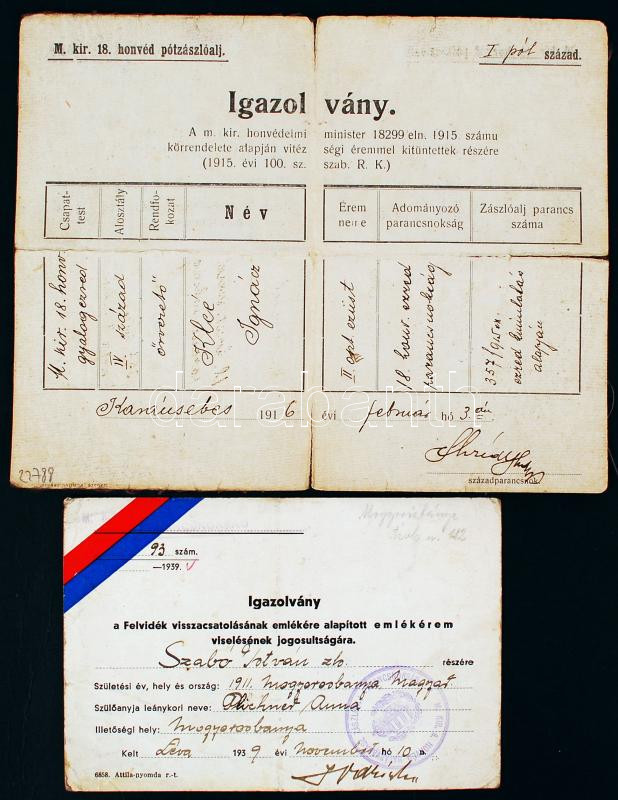 M. kir. 18. honvéd pótzászlóalj.
I pót század.
Igazolvány.
A m. kir. honvédelmi minister 18299 eln. 1915. számu
körrendelete alapján vitézségi éremmel kitüntettek részére
(1915. évi 100. sz. szab. R. K.)
Csapattest
Alosztály
Rendfokozat
Név
Érem neme
Adományozó parancsnokság
Zászlóalj parancs száma
M. kir. 18. honv. gyalogezred
IV század
őrvezető
Klee Ignácz
II. oszt ezüst
18. honv. ezred parancsnokság
357/915 ezred alapján
1916 évi február hó 3.án
századparancsnok.
22788
darabanth
93 szám.
—1939.
Igazolvány
a Felvidék visszacsatolásának emlékére alapított emlékérem
viselésének jogosultságára.
Szabó István részére
Születési év, hely és ország: 1911. Mogyorosbanya Magyar
Szülőanyja leánykori neve: Anna
Illetőségi hely: Mogyorosbanya
Kelt Léva 1939 évi november hó 10 n.
6858. Attila-nyomda r.-t.